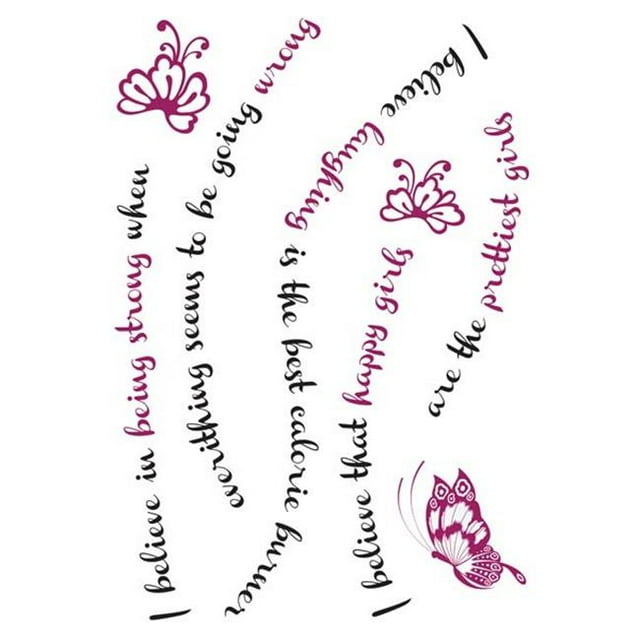 I believe in being strong when
everithing seems to be going wrong
I believe laughing is the best calorie burner
I believe that happy girls
are the prettiest girls